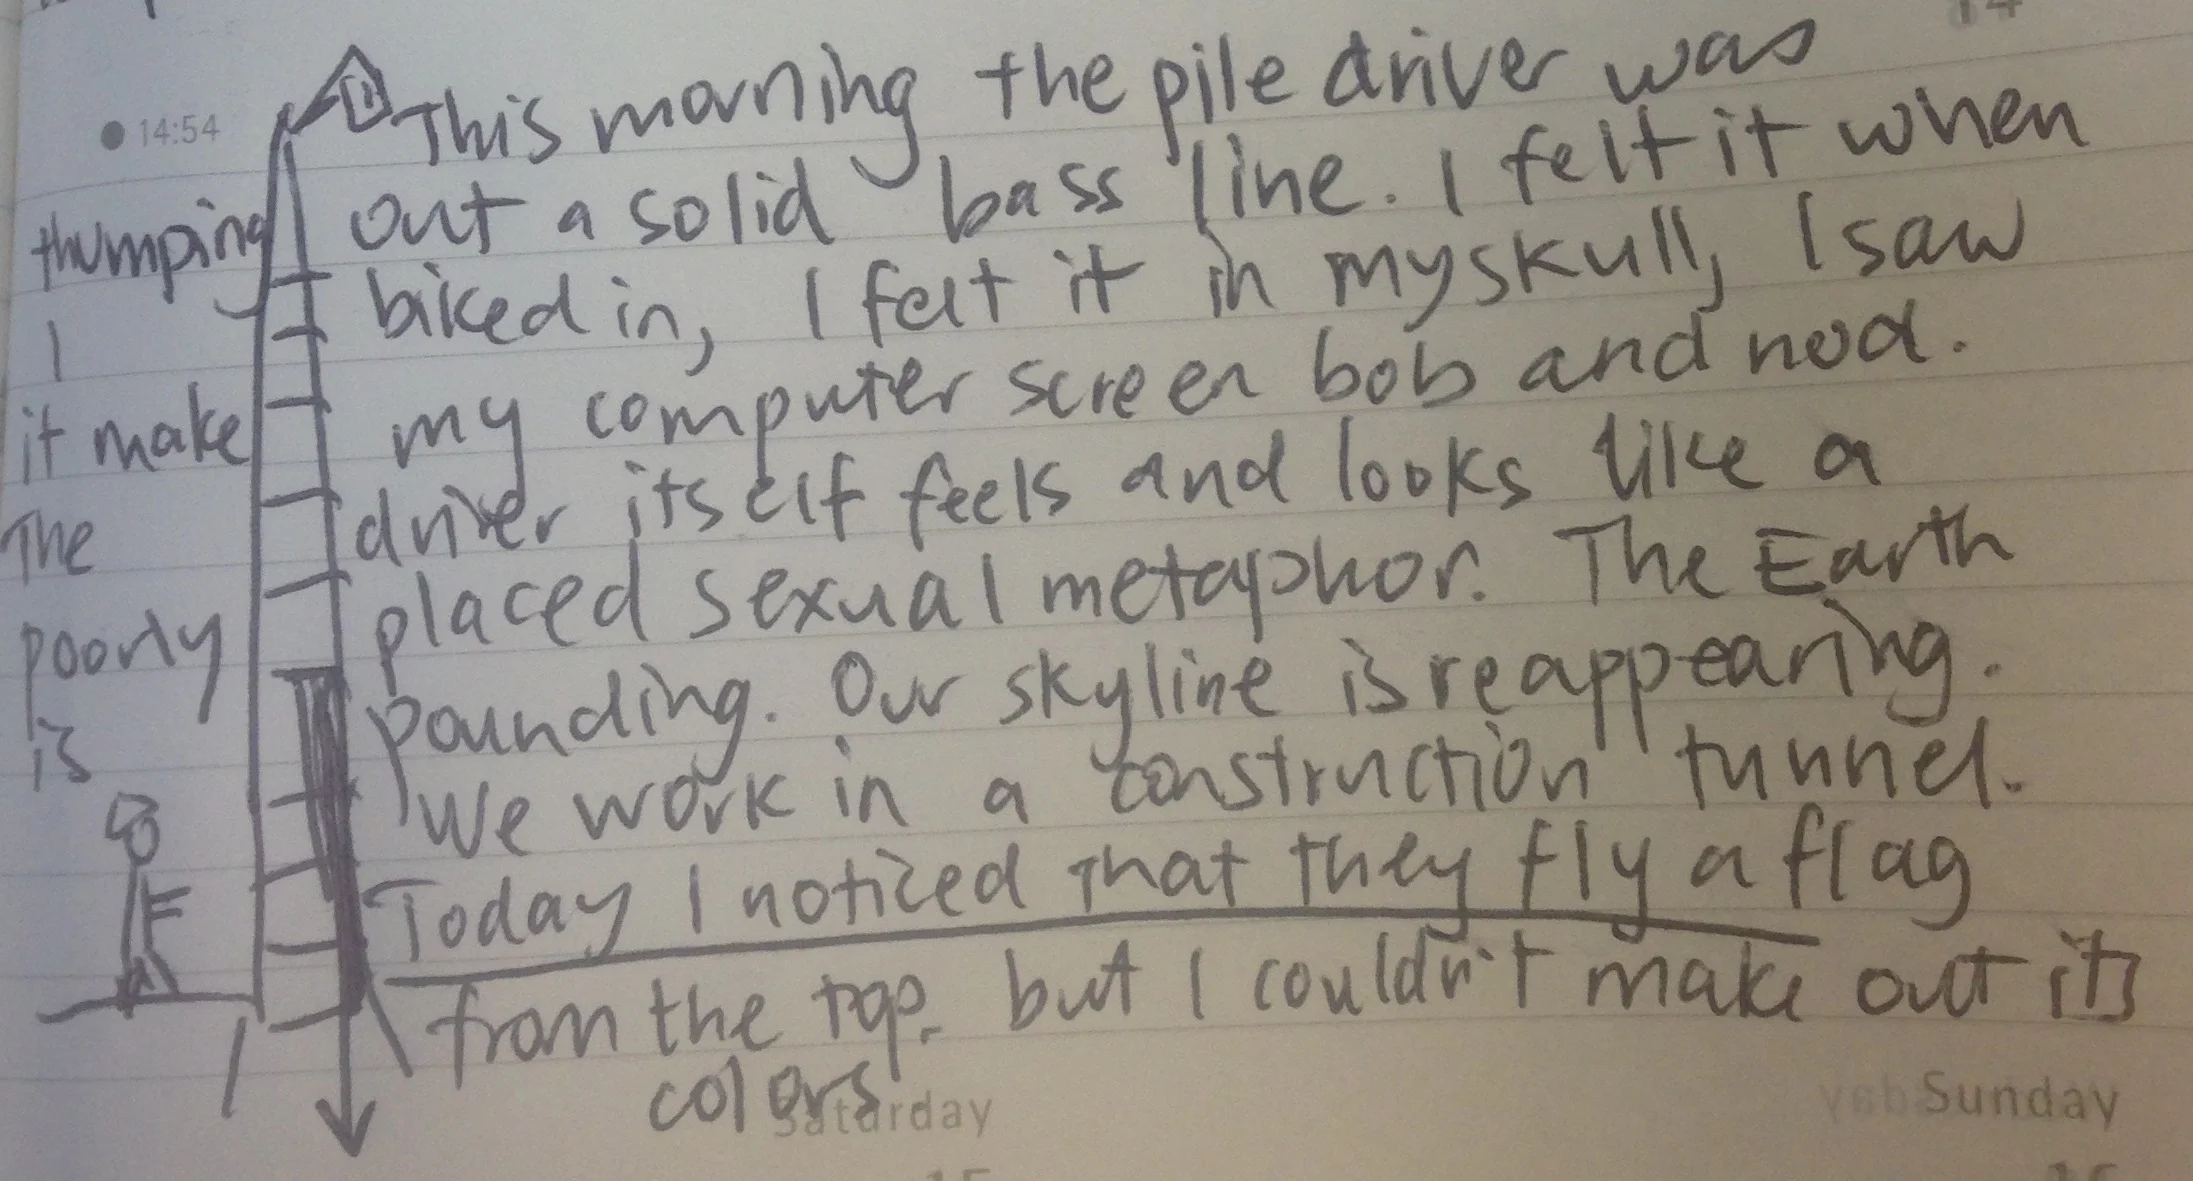 14
14:54
This morning the pile driver was
thumping out a solid bass line. I felt it when
I biked in, I felt it in my skull, I saw
it make my computer screen bob and nod.
The driver itself feels and looks like a
poorly placed sexual metaphor. The Earth
is pounding. Our skyline is reappearing.
We work in a construction tunnel.
Today I noticed that they fly a flag
from the top, but I couldn't make out its
colors
Saturday
Sunday